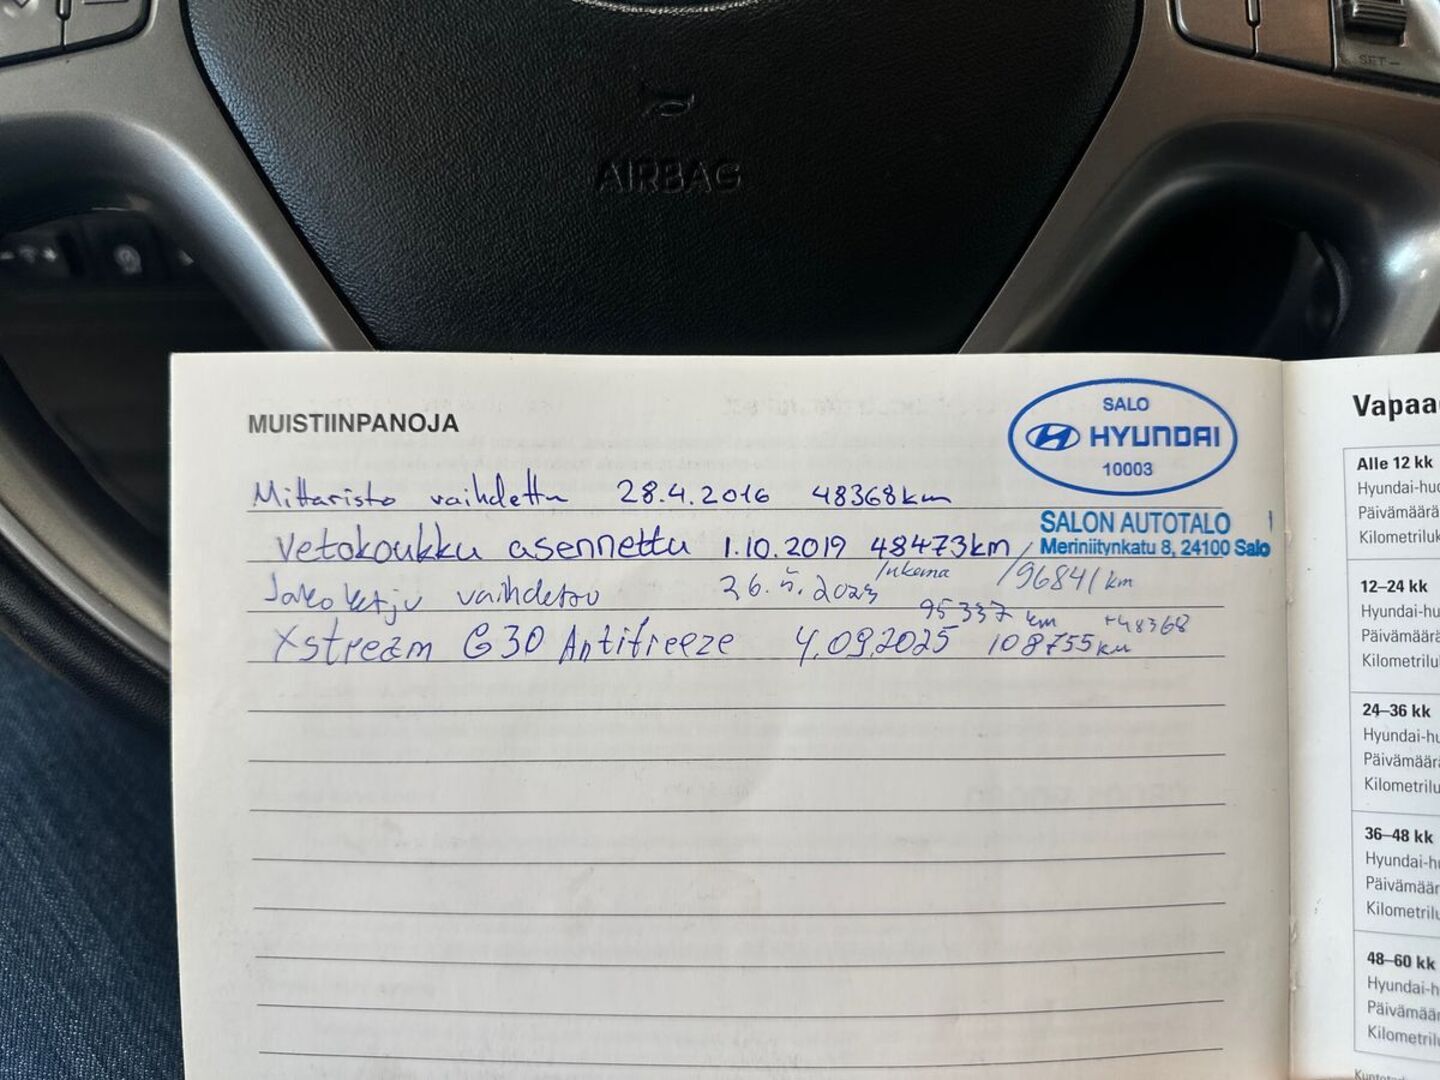 SET–
AIRBAG
MUISTIINPANOJA
SALO
HYUNDAI
10003
Mittaristo vaihdettu 28.4.2016 48368km
SALON AUTOTALO
Meriniitynkatu 8, 24100 Salo
Vetokoukku asennettu 1.10.2019 48473km / 96841 km
lukema
Jakoketju vaihdettu 26.5.2023 95337 km +48368
Xstream G30 Antifreeze 4.09.2025 108755km
Vapaa
Alle 12 kk
Hyundai-huo
Päivämäärä
Kilometriluk
12–24 kk
Hyundai-hu
Päivämäärä
Kilometrilu
24–36 kk
Hyundai-hu
Päivämäärä
Kilometrilu
36–48 kk
Hyundai-h
Päivämäär
Kilometril
48–60 kk
Hyundai-h
Päivämäär
Kilometril